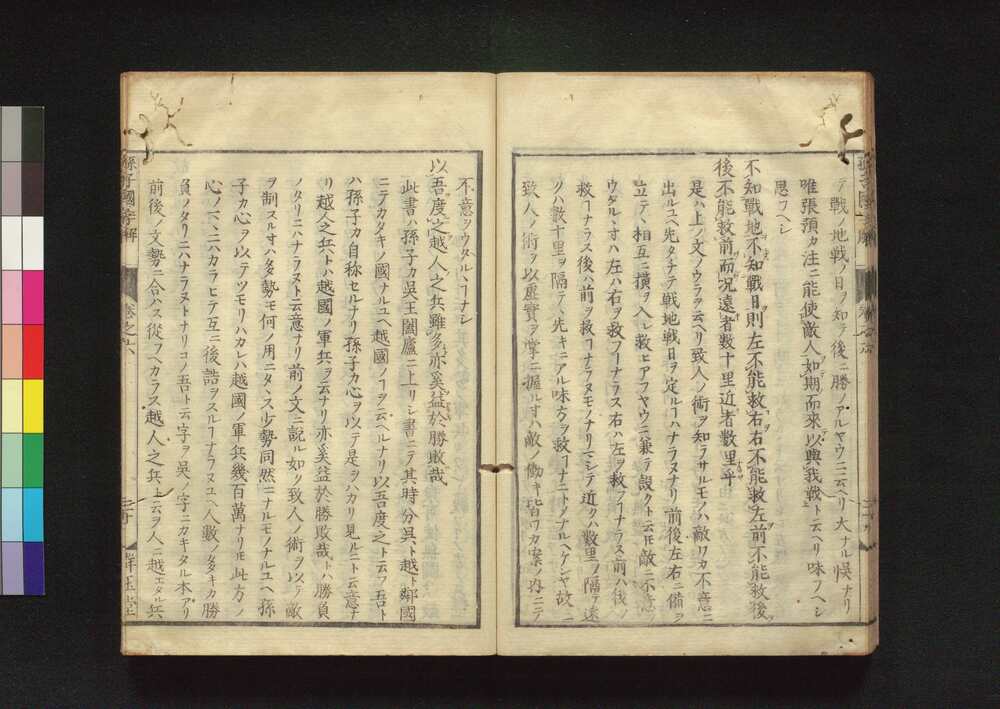 テ戰ノ地戰ノ日ヲ知テ後ニ勝ノアルヤウニ云ヘリ大ナル悞ナリ
唯張預カ注ニ能使敵人如期而來以與我戰ト云ヘリ味フヘシ
思フヘシ
不知戰地不知戰日則左不能救右右不能救左前不能救後
後不能救前而況遠者數十里近者數里乎
是ハ上ノ文ノウラヲ云ヘリ致人ノ術ヲ知ラサルモノハ敵ワカ不意ニ
出ルユヘ先タチテ戰地戰日ヲ定ルヿハナラヌナリ前後左右ニ備ヲ
立テヽ相互ニ横ヲ入レ救ヒアフヤウニ兼テ設クト云𪜈敵ニ不意ヲ
ウタルヽ寸ハ左ハ右ヲ救フヿナラス右ハ左ヲ救フヿナラス前ハ後ヲ
救ヿナラス後ハ前ヲ救ヿナラヌモノナリマシテ近クハ數里ヲ隔テ遠
クハ數十里ヲ隔テヽ先キニアル味方ヲ救ヿナニトメナルヘケンヤ故ニ
致人ノ術ヲ以虚實ヲ掌ニ握ル寸ハ敵ノ働キ皆ワカ案ノ内ニテ
不意ヲウタルヽヿナシ
以吾度之越人之兵雖多亦奚益於勝敗哉
此書ハ孫子カ吳王闔廬ニ上リシ書ニテ其時分吳ト越ト鄰國
ニテカタキノ國ナルユヘ越國ノヿヲ云ヘルナリ以吾度之ト云フ吾ト
ハ孫子カ自称セルナリ孫子カ心ヲ以テ是ヲハカリ見ルニト云意ナ
リ越人之兵トハ越國ノ軍兵ヲ云ナリ亦奚益於勝敗哉トハ勝負
ノタリニハナラヌト云意ナリ前ノ文ニ説ル如ク致人ノ術ヲ以テ敵
ヲ制スル寸ハ多勢モ何ノ用ニタヽス少勢同然ニナルモノナルユヘ孫
子カ心ヲ以テツモリハカレハ越國ノ軍兵幾百萬ナリ𪜈此方ノ
心ノマヽニハカラヒテ互ニ後詰ヲスルヿナラヌユヘ人數ノ多キカ勝
負ノタリニハナラヌトナリコノ吾ト云字ヲ吳ノ字ニカキタル本アリ
前後ノ文勢ニ合ハス從フヘカラス越人之兵ト云ヲ人ニ越エタル兵
孫子國字解
卷之六
二十
群玉堂